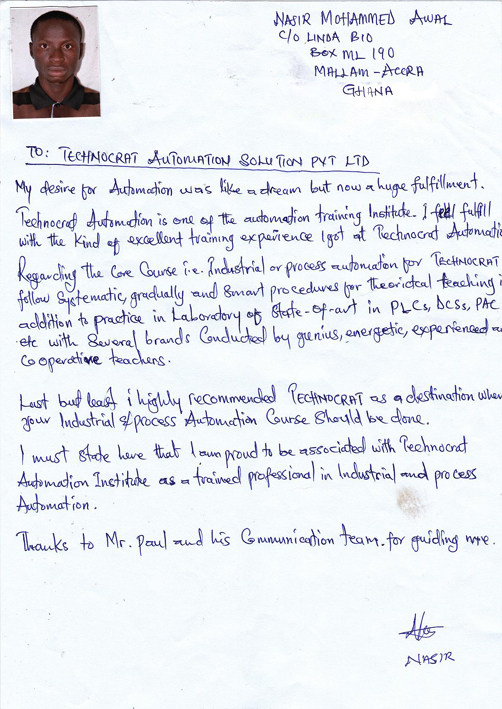 NASIR MOHAMMED AWAL
C/O LINDA BIO
BOX ML 190
MALLAM - ACCRA
GHANA
TO: TECHNOCRAT AUTOMATION SOLUTION PVT LTD
My desire for Automation was like a dream but now a huge fulfillment.
Technocrat Automation is one of the automation training Institute. I feel fulfill
with the kind of excellent training experience I got at Technocrat Automatio
Regarding the Core Course i.e. Industrial or process automation for TECHNOCRAT
follow systematic, gradually and smart procedures for theorictcal teaching i
addition to practice in Laboratory of State-of-art in PLCs, DCSs, PAC
etc with Several brands Conducted by genius, energetic, experienced a
Co operative teachers.
Last but least i highly recommended TECHNOCRAT as a destination wher
your Industrial & process Automation Course Should be done.
I must state here that I am proud to be associated with Technocrat
Automation Institute as a trained professional in Industrial and process
Automation.
Thanks to Mr. paul and his Communication team. for guiding me.
NASIR